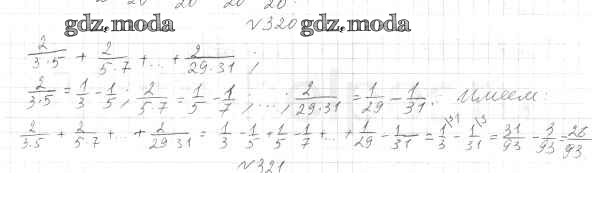 gdz.moda №320 gdz.moda
2/(3·5) + 2/(5·7) + ... + 2/(29·31);
2/(3·5) = 1/3 - 1/5; 2/(5·7) = 1/5 - 1/7; ...; 2/(29·31) = 1/29 - 1/31. Имеем:
2/(3·5) + 2/(5·7) + ... + 2/(29·31) = 1/3 - 1/5 + 1/5 - 1/7 + ... + 1/29 - 1/31 = 1\31/3 - 1\3/31 = 31/93 - 3/93 = 28/93
№321